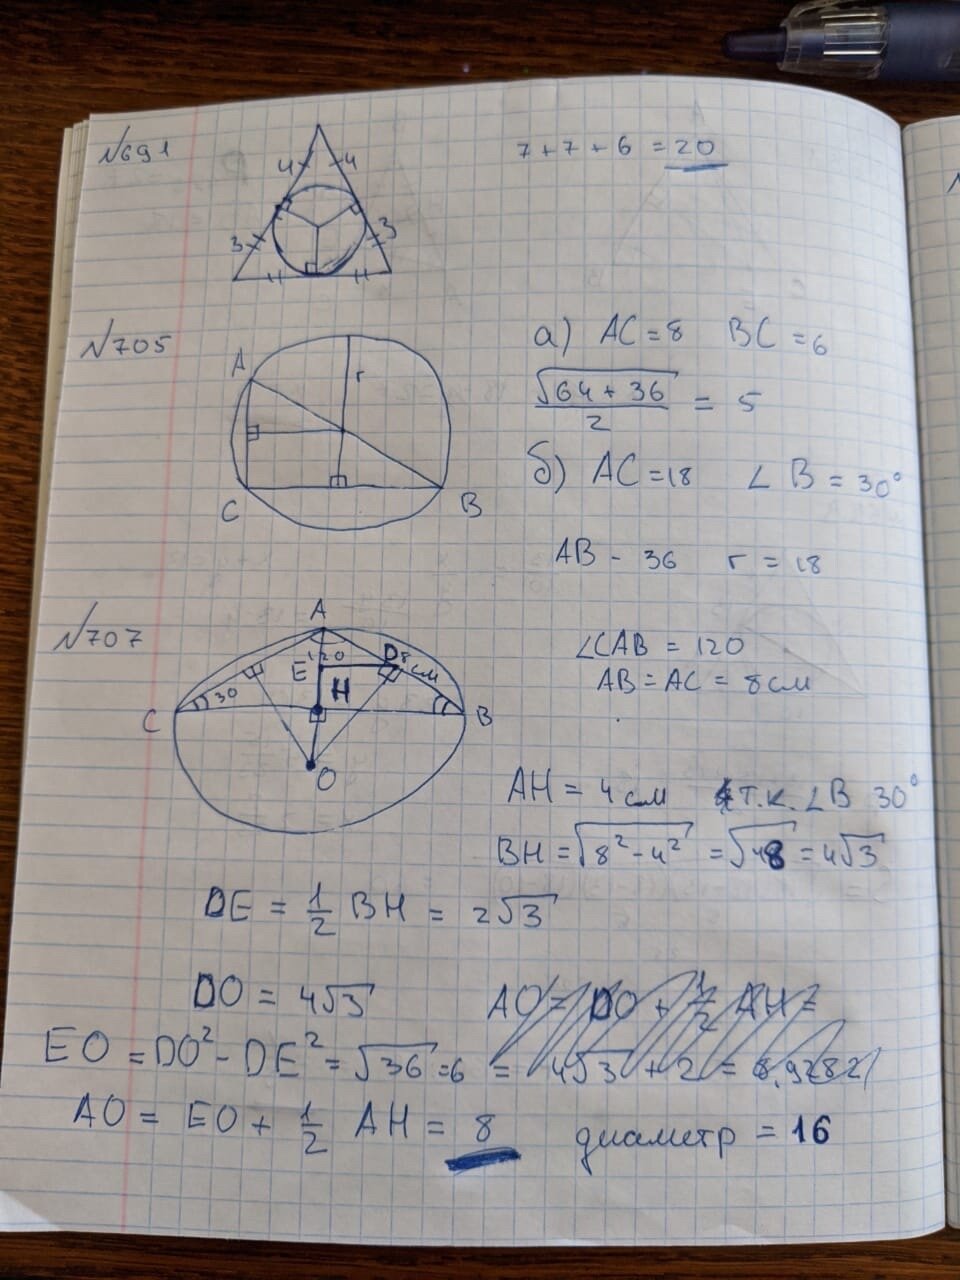 №691
4 4
3 3
7 + 7 + 6 = 20
№705
A r
C B
а) AC = 8 BC = 6
√64 + 36 / 2 = 5
б) AC = 18 ∠B = 30°
AB - 36 r = 18
№707
A
E 120 D 8 см
30 H
C B
O
∠CAB = 120
AB = AC = 8 см
AH = 4 см т.к. ∠B 30°
BH = √8² - 4² = √48 = 4√3
DE = 1/2 BH = 2√3
DO = 4√3 AO = DO + 1/2 AH =
EO = DO² - DE² = √36 = 6 = 4√3 + 2 = 8,9282
AO = EO + 1/2 AH = 8 диаметр = 16